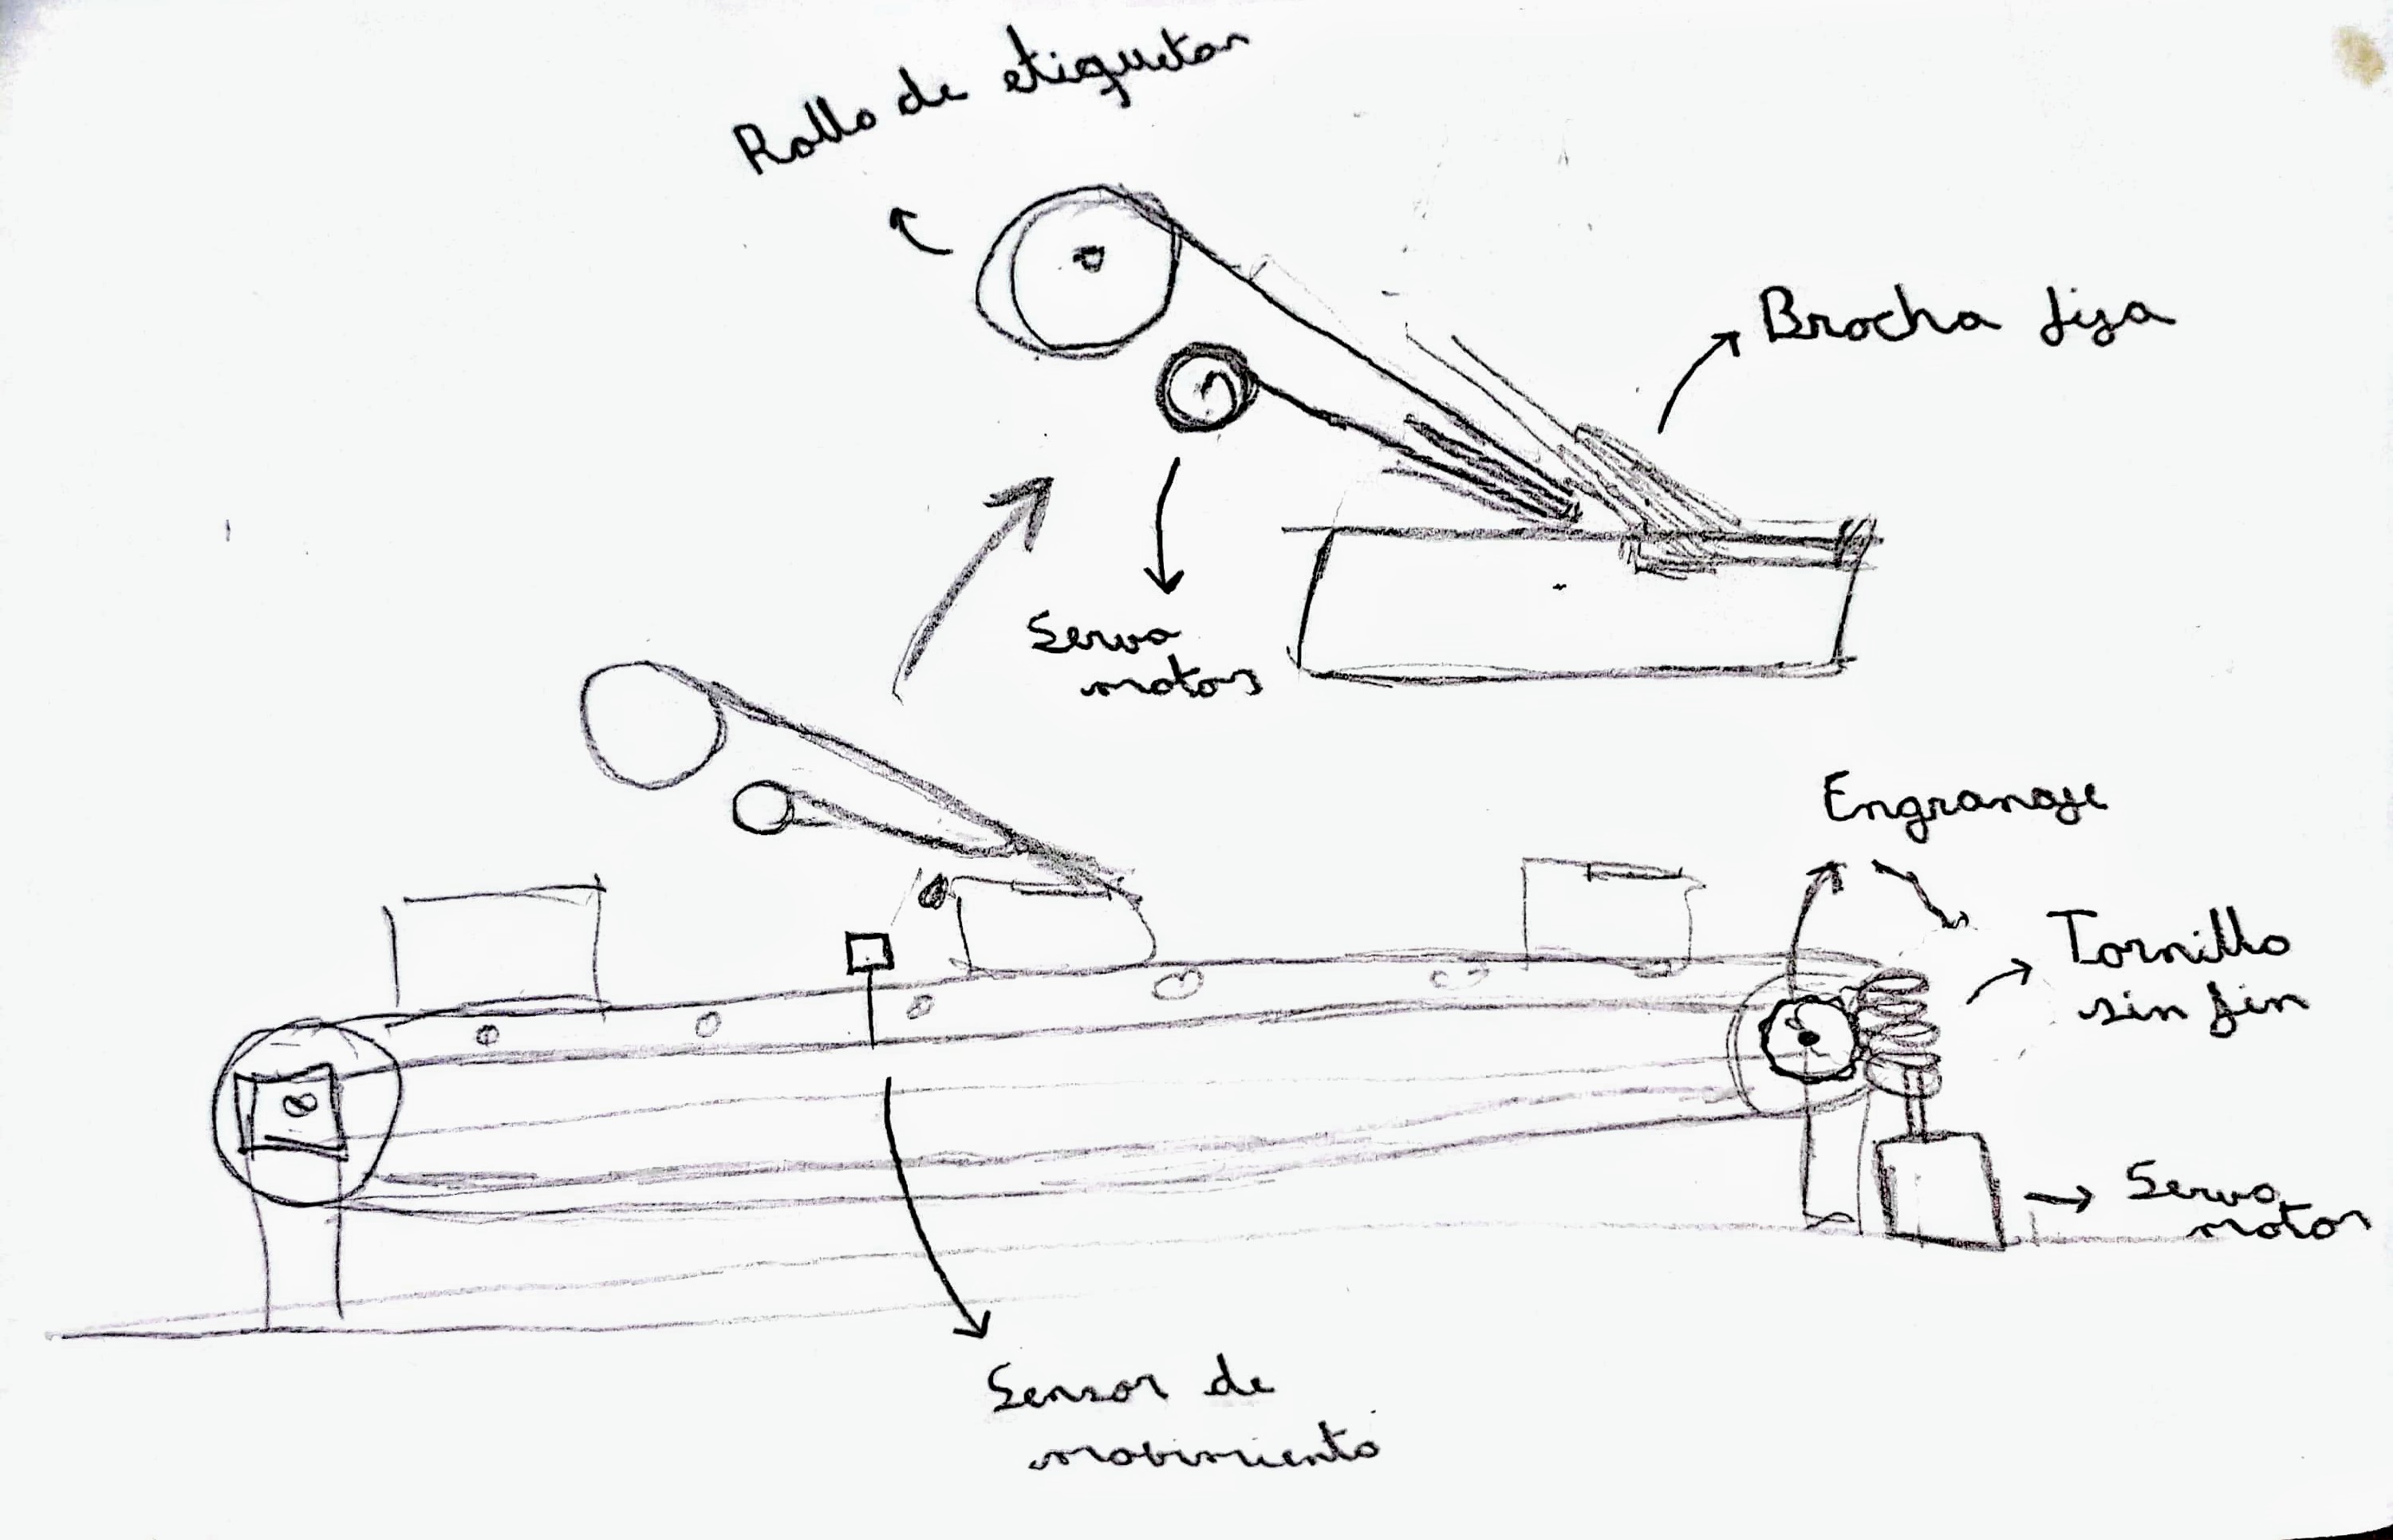 Rollo de etiquetas
Brocha fija
Servo
motor
Engranaje
Tornillo
sin fin
Servo
motor
Sensor de
movimiento